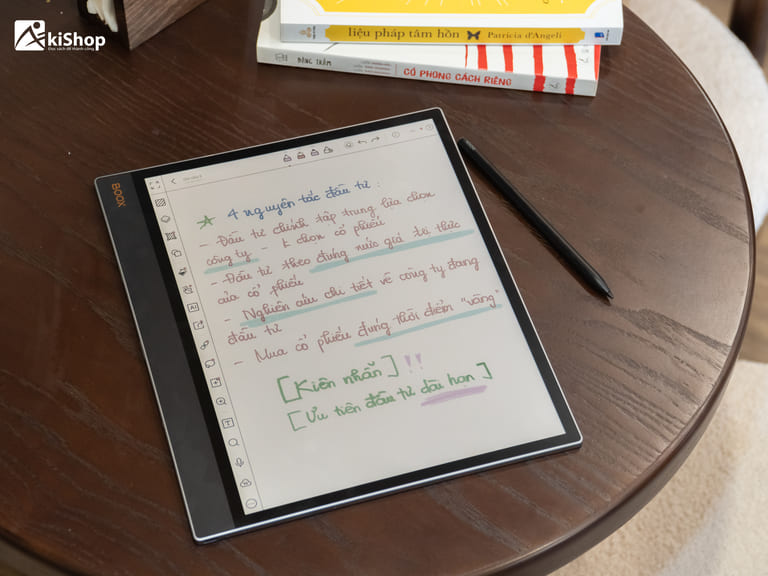 AkiShop
Đọc sách để thành công
liệu pháp tâm hồn Patricia d'Angeli
ĐĂNG TRẦM CÓ PHONG CÁCH RIÊNG
BOOX
4 nguyên tắc đầu tư :
- Đầu tư chính tập trung lựa chọn
công ty - k chọn cổ phiếu
- Đầu tư theo đúng mức giá trị thực
của cổ phiếu
- Nghiên cứu chi tiết về công ty đang
đầu tư
- Mua cổ phiếu đúng thời điểm "vàng"
[Kiên nhẫn] !!
[Ưu tiên đầu tư dài hạn]